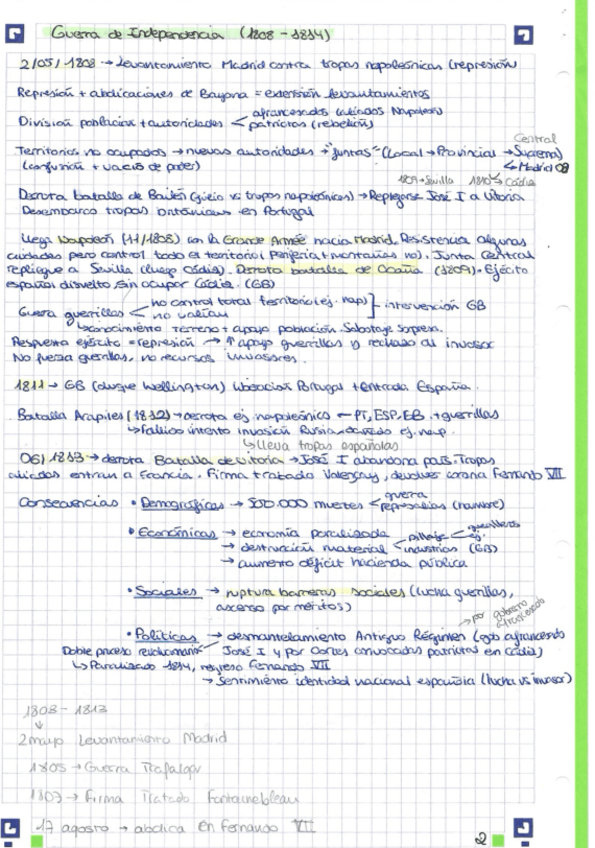 Guerra de Independencia (1808 - 1814)
2/05/1808 → Levantamiento Madrid contra tropas napoleónicas (represión)
Represión + abdicaciones de Bayona = extensión levantamientos
afrancesados (aliados Napoleón)
División población + autoridades < patriotas (rebelión)
Central
Territorios no ocupados → nuevas autoridades → "juntas" (Local → Provincial → Suprema)
(confusión + vacío de poder) ↳ Madrid 08
1809 → Sevilla 1810 → Cádiz
Derrota batalla de Bailén (juicio vs tropas napoleónicas) → Repliegue José I a Vitoria
Desembarco tropas británicas en Portugal
Llega Napoleón (11/1808) con la Grande Armée hacia Madrid. Resistencia algunas
ciudades pero control todo el territorio (Periferia + montañas no). Junta Central
repliegue a Sevilla (luego Cádiz). Derrota batalla de Ocaña (1809). Ejército
español disuelto, sin ocupar Cádiz. (GB)
Guerra guerrillas < no control total territorio (ej. nap)
no valían } intervención GB
↳ conocimiento terreno + apoyo población. Sabotaje sorpresa.
Respuesta ejército = represión → ↑ apoyo guerrillas y rechazo al invasor
No fuerza guerrillas, no recursos invasores.
1811 → GB (duque Wellington) liberación Portugal + entrada España.
Batalla Arapiles (1812) → derrota ej napoleónico ← PT, ESP, GB + guerrillas
↳ Fallido intento invasión Rusia ej. nap.
↳ Lleva tropas españolas
06/1813 → derrota Batalla de Vitoria → José I abandona país. Tropas
aliadas entran a Francia. Firma tratado Valençay, devolver corona Fernando VII
Consecuencias • Demográficas → 500.000 muertes < guerra
represalias (hambre)
• Económicas → economía paralizada
→ destrucción material < pillaje < guerrilleros
ej.
industrias (GB)
→ aumento déficit hacienda pública
• Sociales → ruptura barreras sociales (lucha guerrillas,
ascenso por méritos)
→ por gobierno afrancesado
• Políticas → desmantelamiento Antiguo Régimen (afrancesado
Doble proceso revolucionario José I y por Cortes convocadas patriotas en Cádiz)
↳ Paralizado 1814, regreso Fernando VII
→ Sentimiento identidad nacional española (lucha vs invasor)
1808 - 1813
↓
2 mayo Levantamiento Madrid
1805 → Guerra Trafalgar
1807 → Firma Tratado Fontainebleau
17 agosto → abdica en Fernando VII
2